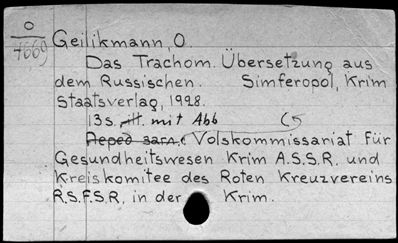 O
4669
Geilikmann, O.
Das Trachom. Übersetzung aus
dem Russischen. Simferopol, Krim
Staatsverlag, 1928.
13 s. ill. mit Abb
Перед загл. Volskommissariat für
Gesundheitswesen Krim A.S.S.R. und
Kreiskomitee des Roten Kreuzvereins
R.S.F.S.R, in der Krim.